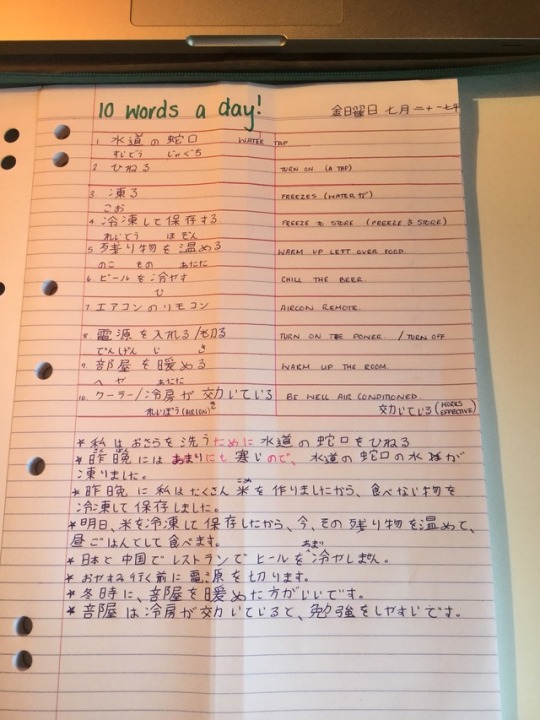 10 words a day!
金曜日 七月二十一七年
1 水道の蛇口 WATER TAP
すいどう じゃぐち
2 ひねる TURN ON (A TAP)
3 凍る FREEZES (WATER が)
こお
4 冷凍して保存する FREEZE to STORE (FREEZE & STORE)
れいとう ほぞん
5 残り物を温める WARM UP LEFT OVER FOOD.
のこ もの あたた
6 ビールを冷やす CHILL THE BEER.
ひ
7. エアコンのリモコン AIRCON REMOTE.
8 電源を入れる/切る TURN ON THE POWER. / TURN OFF
でんげん い き
9. 部屋を暖める WARM UP THE ROOM.
へや あたた
10. クーラー/冷房が効いている BE WELL AIR CONDITIONED.
れいぼう (AIRCON) 効いている (WORKS EFFECTIVE)
* 私はおさらを洗うために水道の蛇口をひねる
* 昨晩にはあまりにも寒いので、水道の蛇口の水が
凍りました。
* 昨晩に私はたくさん米を作りましたから、食べない物を
こめ
冷凍して保存しました。
* 明日、米を冷凍して保存したから、今、その残り物を温めて、
昼ごはんとして食べます。
あまり
* 日本と中国でレストランでビールを冷やしません。
* おやすみ行く前に電源を切ります。
* 冬時に、部屋を暖めた方がいいです。
* 部屋は冷房が効いていると、勉強をしやすいです。